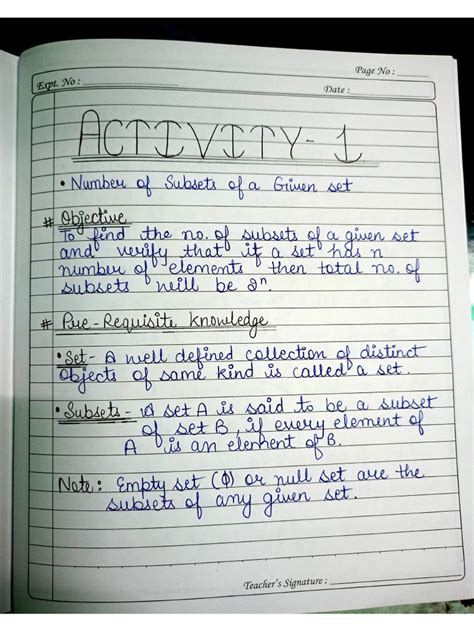 Page No :
Expt. No :
Date :
ACTIVITY-1
• Number of Subsets of a Given set
# Objective
To find the no. of subsets of a given set
and verify that if a set has n
number of elements then total no. of
subsets will be 2ⁿ.
# Pre-Requisite knowledge
• Set - A well defined collection of distinct
objects of same kind is called a set.
• Subsets - A set A is said to be a subset
of set B, if every element of
A is an element of B.
Note : Empty set (ϕ) or null set are the
subsets of any given set.
Teacher's Signature :